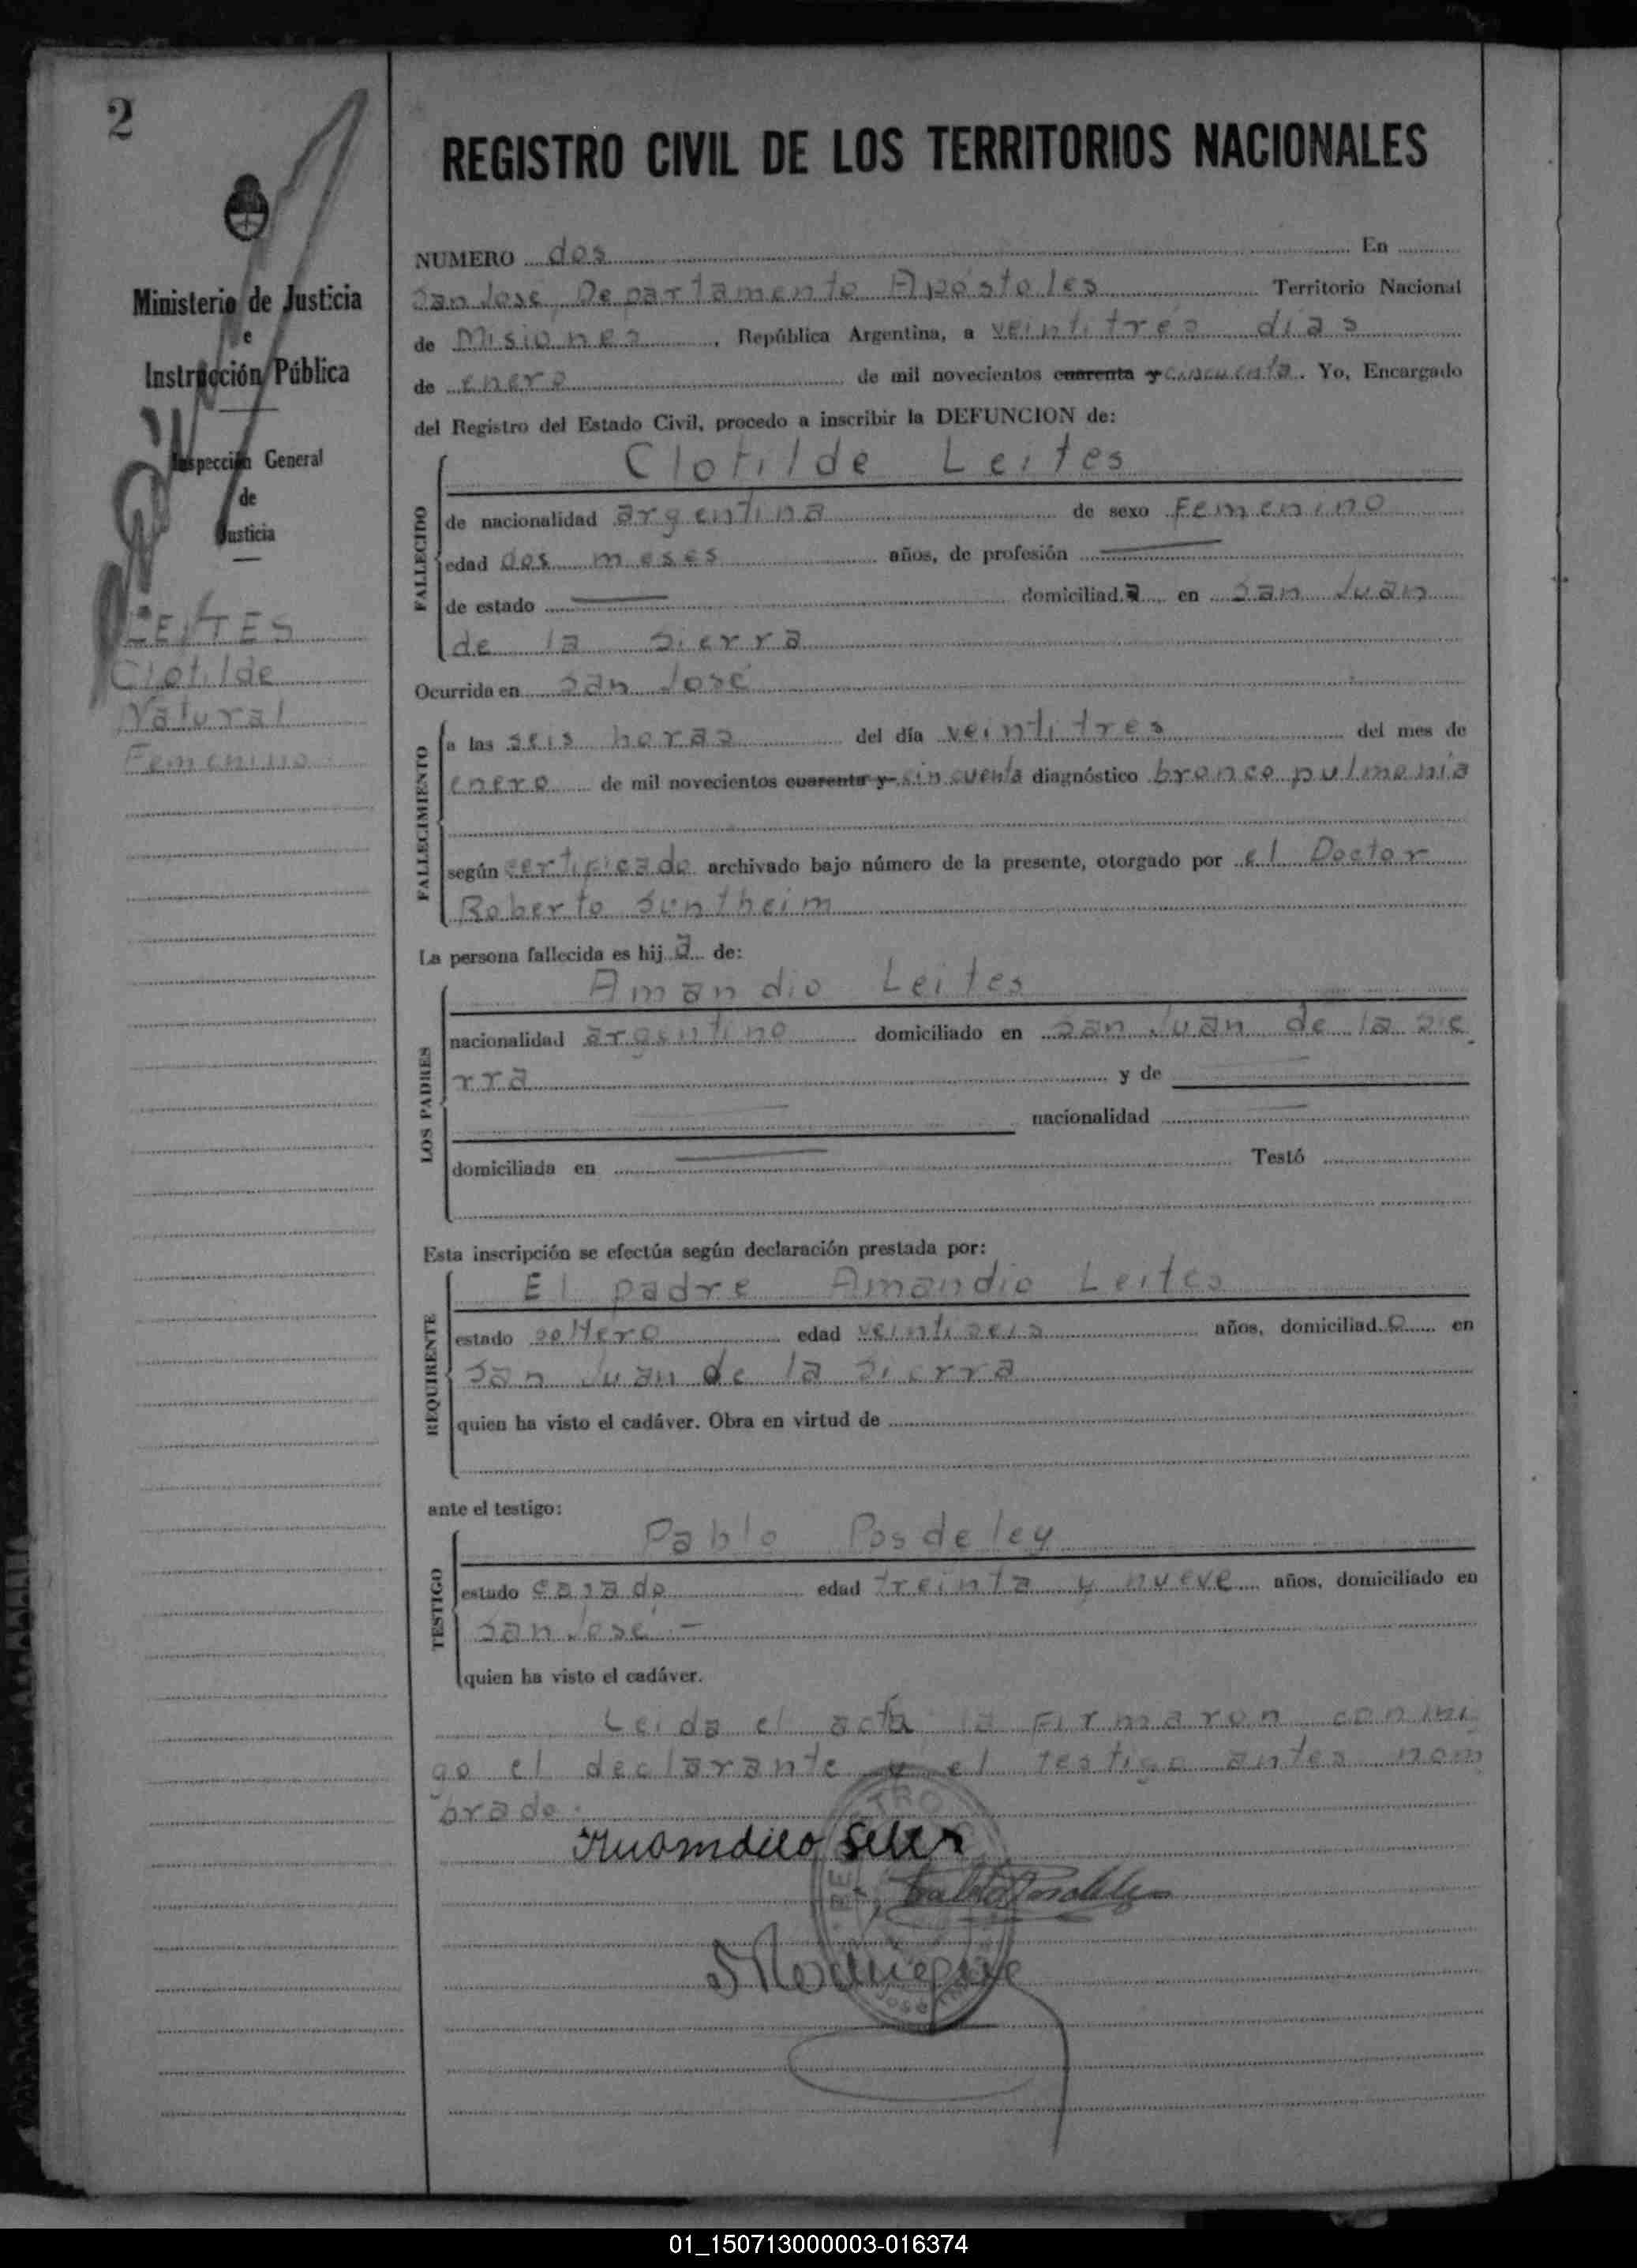 2
Ministerio de Justicia
e
Instrucción Pública
Inspección General
de
Justicia
LEITES
Clotilde
Natural
Femenino
REGISTRO CIVIL DE LOS TERRITORIOS NACIONALES
NUMERO dos En
San José, Departamento Apóstoles Territorio Nacional
de Misiones, República Argentina, a veintitres dias
de enero de mil novecientos cuarenta y cincuenta. Yo, Encargado
del Registro del Estado Civil, procedo a inscribir la DEFUNCION de:
Clotilde Leites
FALLECIDO
de nacionalidad argentina de sexo Femenino
edad dos meses años, de profesión —
de estado — domiciliada en San Juan
de la Sierra
Ocurrida en San José
FALLECIMIENTO
a las seis horas del día veintitres del mes de
enero de mil novecientos cuarenta y cincuenta diagnóstico bronco pulmonia
según certificado archivado bajo número de la presente, otorgado por el Doctor
Roberto Suntheim
La persona fallecida es hija de:
Amandio Leites
LOS PADRES
nacionalidad argentino domiciliado en San Juan de la Sie
rra y de —
— nacionalidad —
domiciliada en — Testó
Esta inscripción se efectúa según declaración prestada por:
El padre Amandio Leites
REQUIRENTE
estado soltero edad veintiseis años, domiciliado en
San Juan de la Sierra
quien ha visto el cadáver. Obra en virtud de
ante el testigo:
Pablo Posdeley
TESTIGO
estado casado edad treinta y nueve años, domiciliado en
San José.—
quien ha visto el cadáver.
Leida el acta la Firmaron conmi
go el declarante y el testigo antes nom
brado.
01_150713000003-016374